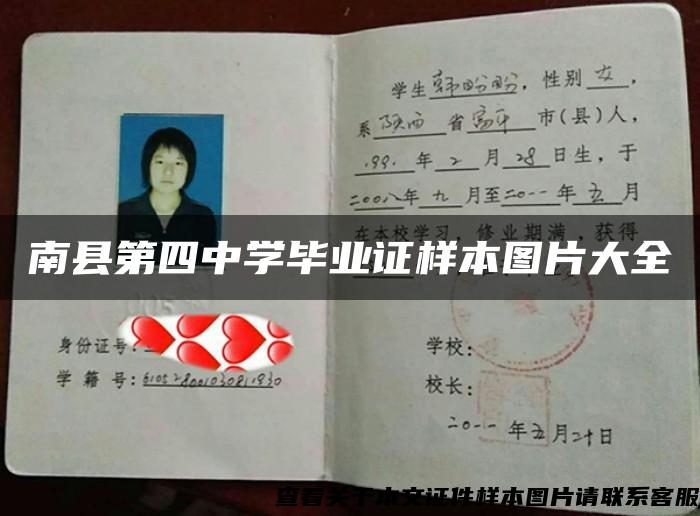 学生韩盼盼，性别女，
系陕西省富平市(县)人，
1991年2月28日生，于
二00八年九月至二0一一年五月
在本校学习，修业期满，获得
南县第四中学毕业证样本图片大全
身份证号：
学籍号：
学校：
校长：
二0一一年五月二十日
查看关于本文证件样本图片请联系客服